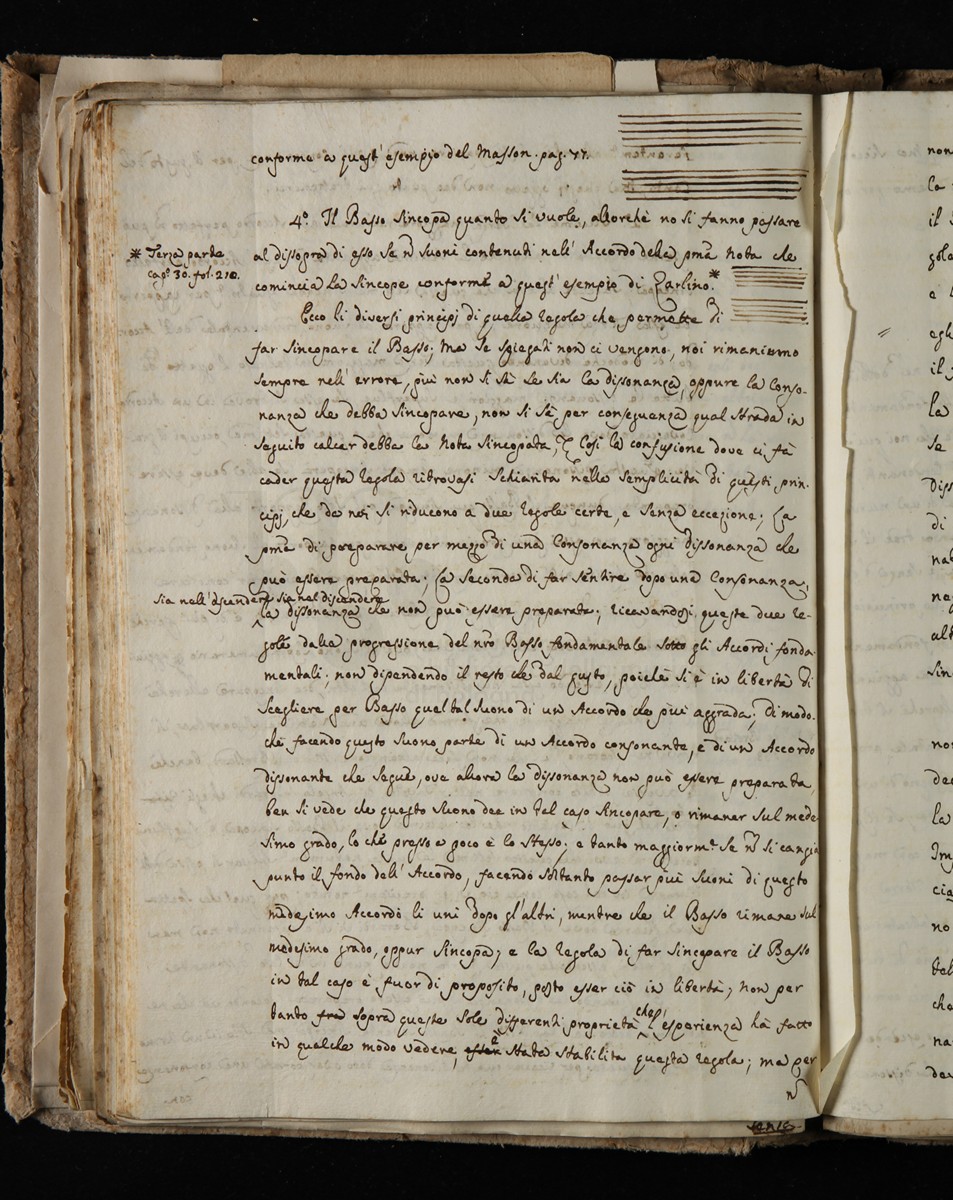 conforme a quest' esempio del Masson. pag. 77.
4.° Il Basso sincopa quanto si vuole, allorchè no si fanno passare
al dissopra di esso se ñ suoni contenuti nell' Accordo della pma nota che
comincia la sincope conforme a quest' esempio di Zarlino.*
* Terza parte
cap.° 30. fol. 210.
Ecco li diversi principj di quella regola che permette di
far sincopare il Basso; ma se spiegati non ci vengono, noi rimanimmo
sempre nell' errore, più non si sà se sia la dissonanza, oppure la conso-
nanza che debba sincopare, non si sà per conseguenza qual strada in
seguito calcar debba la nota sincopata, Così la confusione dove ci fà
cader questa regola ritrovasi schiarita nella semplicità di questi prin-
cipj, che da noi si riducono a due regole certe, e senza eccezione; La
pma di preparare per mezzo di una Consonanza ogni dissonanza che
può essere preparata; La seconda di far sentire dopo una Consonanza,
sia nell' ascendere sia nel discendere
la dissonanza che non può essere preparata; ricavandosi queste due re-
gole dalla progressione del nro Basso fondamentale sotto gli Accordi fonda-
mentali; non dipendendo il resto che dal gusto, poichè si è in libertà di
scegliere per Basso quel tal suono di un Accordo che più aggrada; Di modo.
che facendo questo suono parte di un Accordo consonante, e di un Accordo
dissonante che segue, ove allora la dissonanza non può essere preparata,
ben si vede che questo suono dee in tal caso sincopare, o rimaner sul mede
simo grado, lo che presso a poco è lo stesso; e tanto maggiorm.e se ñ si cangia
punto il fondo dell' Accordo, facendo soltanto passar più suoni di questo
medesimo Accordo li uni dopo gl' altri, mentre che il Basso rimane sul
medesimo grado, oppur sincopa; e la regola di far sincopare il Basso
in tal caso è fuor di proposito, posto esser ciò in libertà; non per
tanto fra sopra queste sole differenti proprietà che l' esperienza hà fatto
in qualche modo vedere, esser è stata stabilita questa regola; ma per
ñ